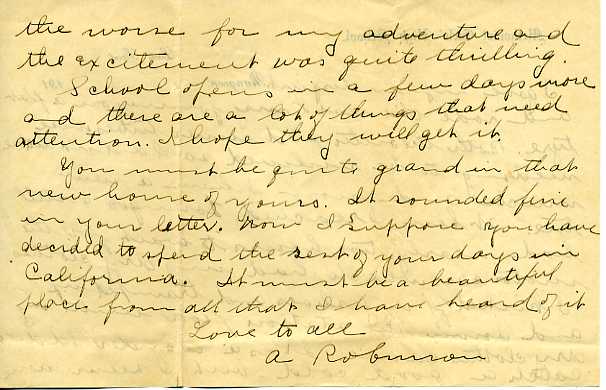 the worse for my adventure and
the excitement was quite thrilling.
School opens in a few days more
and there are a lot of things that need
attention. I hope they will get it.
You must be quite grand in that
new house of yours. It sounded fine
in your letter. Now I suppose you have
decided to spend the rest of your days in
California. It must be a beautiful
place from all that I have heard of it
Love to all
A Robinson